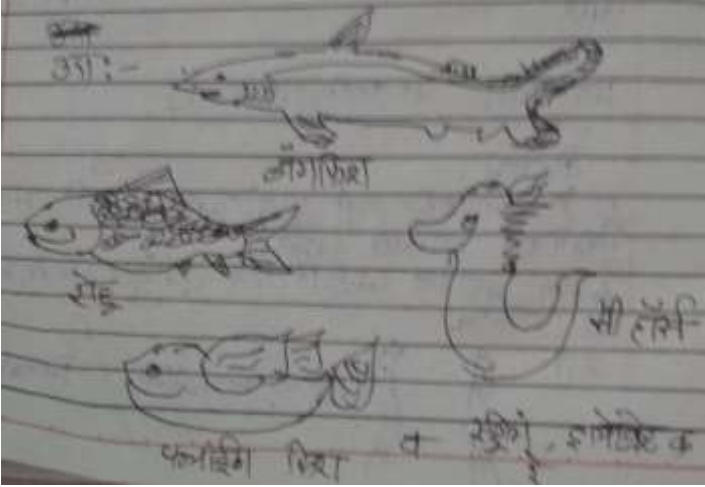 उत्तर:-
डॉगफिश
रोहू
सी हॉर्स
फ्लाइंग फिश
व